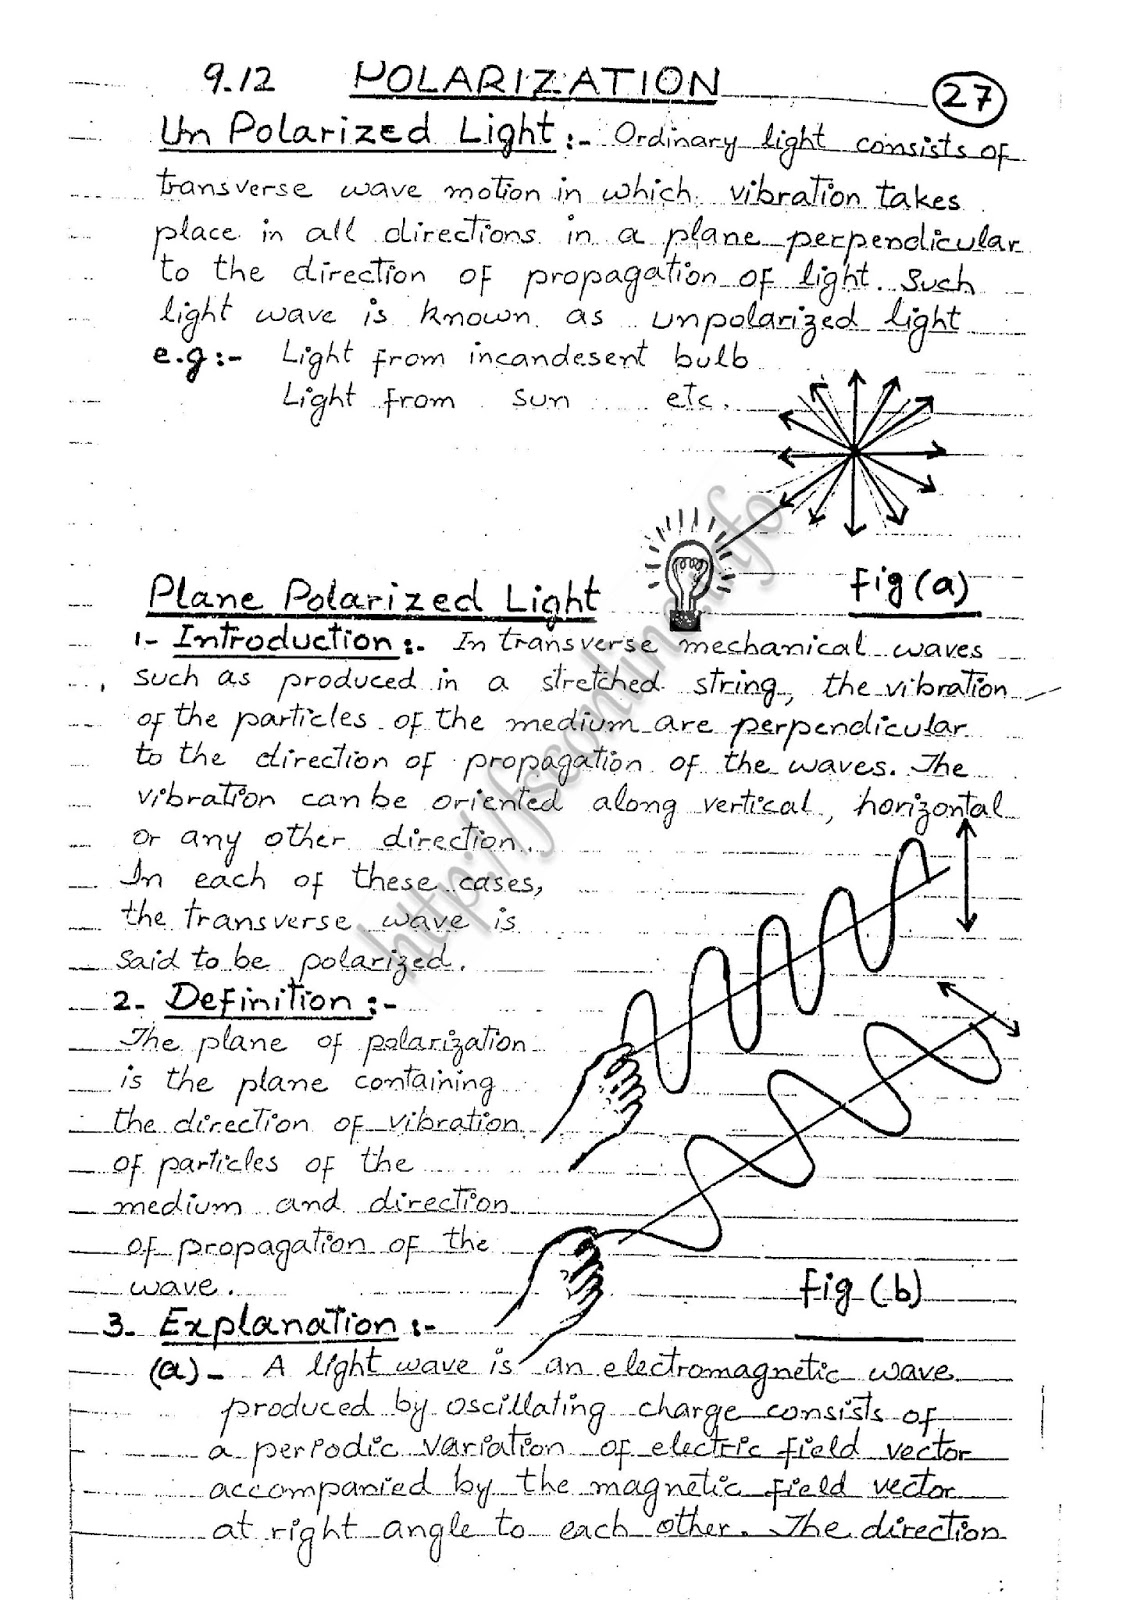 9.12 POLARIZATION
27
Un Polarized Light :- Ordinary light consists of
transverse wave motion in which vibration takes
place in all directions in a plane perpendicular
to the direction of propagation of light. Such
light wave is known as unpolarized light
e.g:- Light from incandesent bulb
Light from sun etc.
Fig (a)
Plane Polarized Light
1- Introduction :- In transverse mechanical waves
such as produced in a stretched string, the vibration
of the particles of the medium are perpendicular
to the direction of propagation of the waves. The
vibration can be oriented along vertical, horizontal
or any other direction.
In each of these cases,
the transverse wave is
said to be polarized.
2- Definition :-
The plane of polarization
is the plane containing
the direction of vibration
of particles of the
medium and direction
of propagation of the
wave.
Fig (b)
3- Explanation :-
(a)- A light wave is an electromagnetic wave
produced by oscillating charge consists of
a periodic variation of electric field vector
accompanied by the magnetic field vector
at right angle to each other. The direction
http://fsconline.info